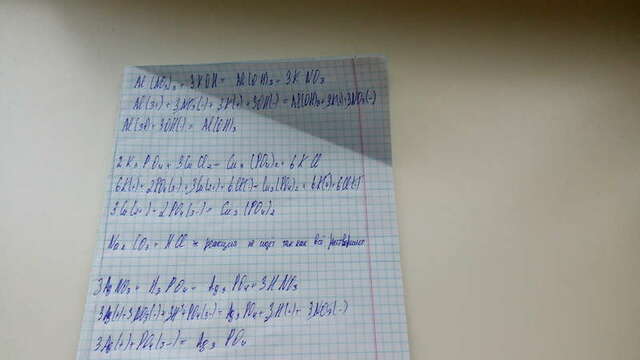 Al(NO₃)₃ + 3KOH = Al(OH)₃ + 3KNO₃
Al(3+) + 3NO₃(-) + 3K(+) + 3OH(-) = Al(OH)₃ + 3K(+) + 3NO₃(-)
Al(3+) + 3OH(-) = Al(OH)₃
2K₃PO₄ + 3CuCl₂ = Cu₃(PO₄)₂ + 6KCl
6K(+) + 2PO₄(3-) + 3Cu(2+) + 6Cl(-) = Cu₃(PO₄)₂ + 6K(+) + 6Cl(-)
3Cu(2+) + 2PO₄(3-) = Cu₃(PO₄)₂
Na₂CO₃ + HCl = реакция не идет так как все
3AgNO₃ + H₃PO₄ = Ag₃PO₄ + 3HNO₃
3Ag(+) + 3NO₃(-) + 3H⁺ + PO₄(3-) = Ag₃PO₄ + 3H(+) + 3NO₃(-)
3Ag(+) + PO₄(3-) = Ag₃PO₄